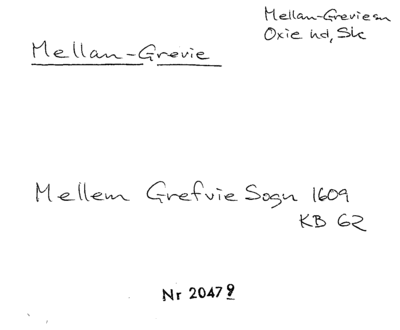 Mellan-Greviesn
Oxie hd, Sk
Mellan-Grevie
Mellem Grefvie Sogn 1609
KB 62
Nr 20479